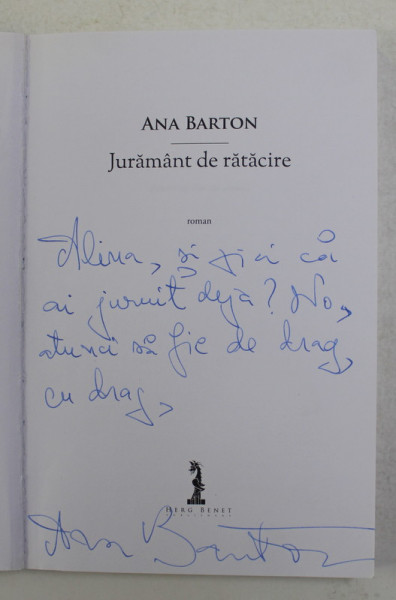 ANA BARTON
Jurământ de rătăcire
roman
Alina, și știi că
ai juruit deja? No,
atunci să fie de drag,
cu drag,
HERG BENET
PUBLISHERS
Ana Barton